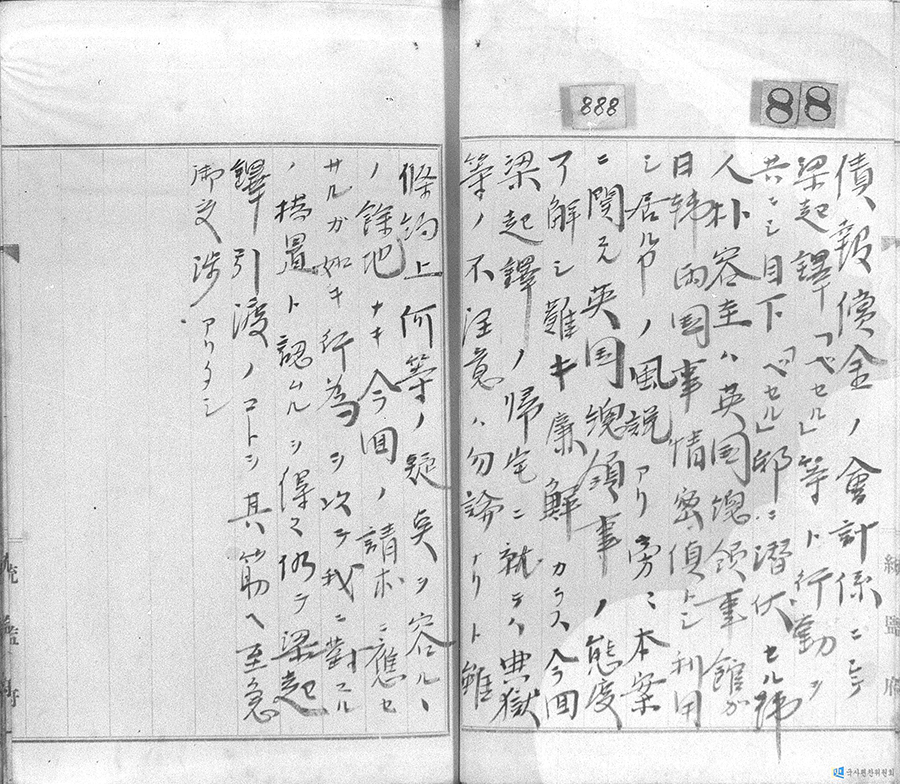 888
88
債報償金ノ會計係ニシテ
梁起鐸「ベセル」等ト行動ヲ
共ニシ目下「ベセル」邸ニ潜伏セル韓
人朴容圭ハ英国総領事館カ
日韓両国事情密偵トシ利用
シ居ルヤノ風説アリ旁々本案
ニ関スル英国総領事ノ態度
了解シ難キ廉鮮カラス今回
梁起鐸ノ帰宅ニ就テハ典獄
等ノ不注意ハ勿論ナリト雖
條約上何等ノ疑点ヲ容ルヽ
ノ餘地ナキ今回ノ請求ニ應セ
サルガ如キ行為ヲ以テ我ニ對スル
ノ措置ト認ムルヲ得ス仍テ梁起
鐸引渡ノコトヲ其筋ヘ至急
御交渉アリタシ
統監府
統監府
국사편찬위원회